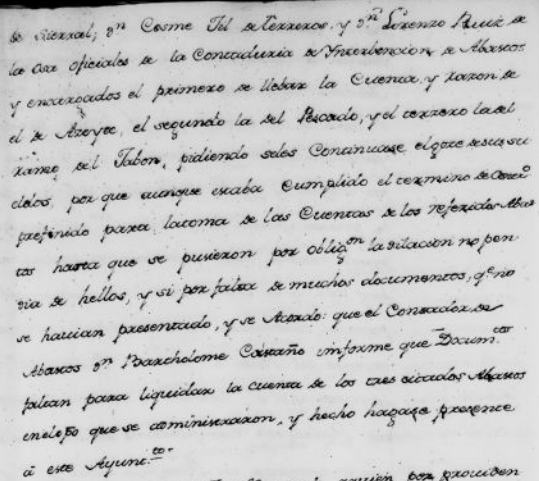 de Sierral; dn Cosme Tel de Terreros, y dn Lorenzo Ruiz de
la Osa Oficiales de la Contaduria de Ynterbencion de Abastos
y encargados el primero de llebar la Cuenta, y razon de
el de Azeyte, el segundo la del Pescado, y el terzero la del
ramo del Jabon, pidiendo seles Continuase el goze de sus su
eldos, por que aunque estaba Cumplido el termino de
prefinido para latoma de las Cuentas de los referidos Abas
tos hasta que se pusieron por obligon la dilacion no pen
dia de hellos, y si por falta de muchos documentos, qe no
se hauian presentado, y se Acordo: que el Contador de
Abastos dn Bartholome Castaño informe que Documtos
faltan para liquidar la cuenta de los tres citados Abastos
enelpo que se administraron, y hecho hagase presente
á este Ayuntto.
por prouiden